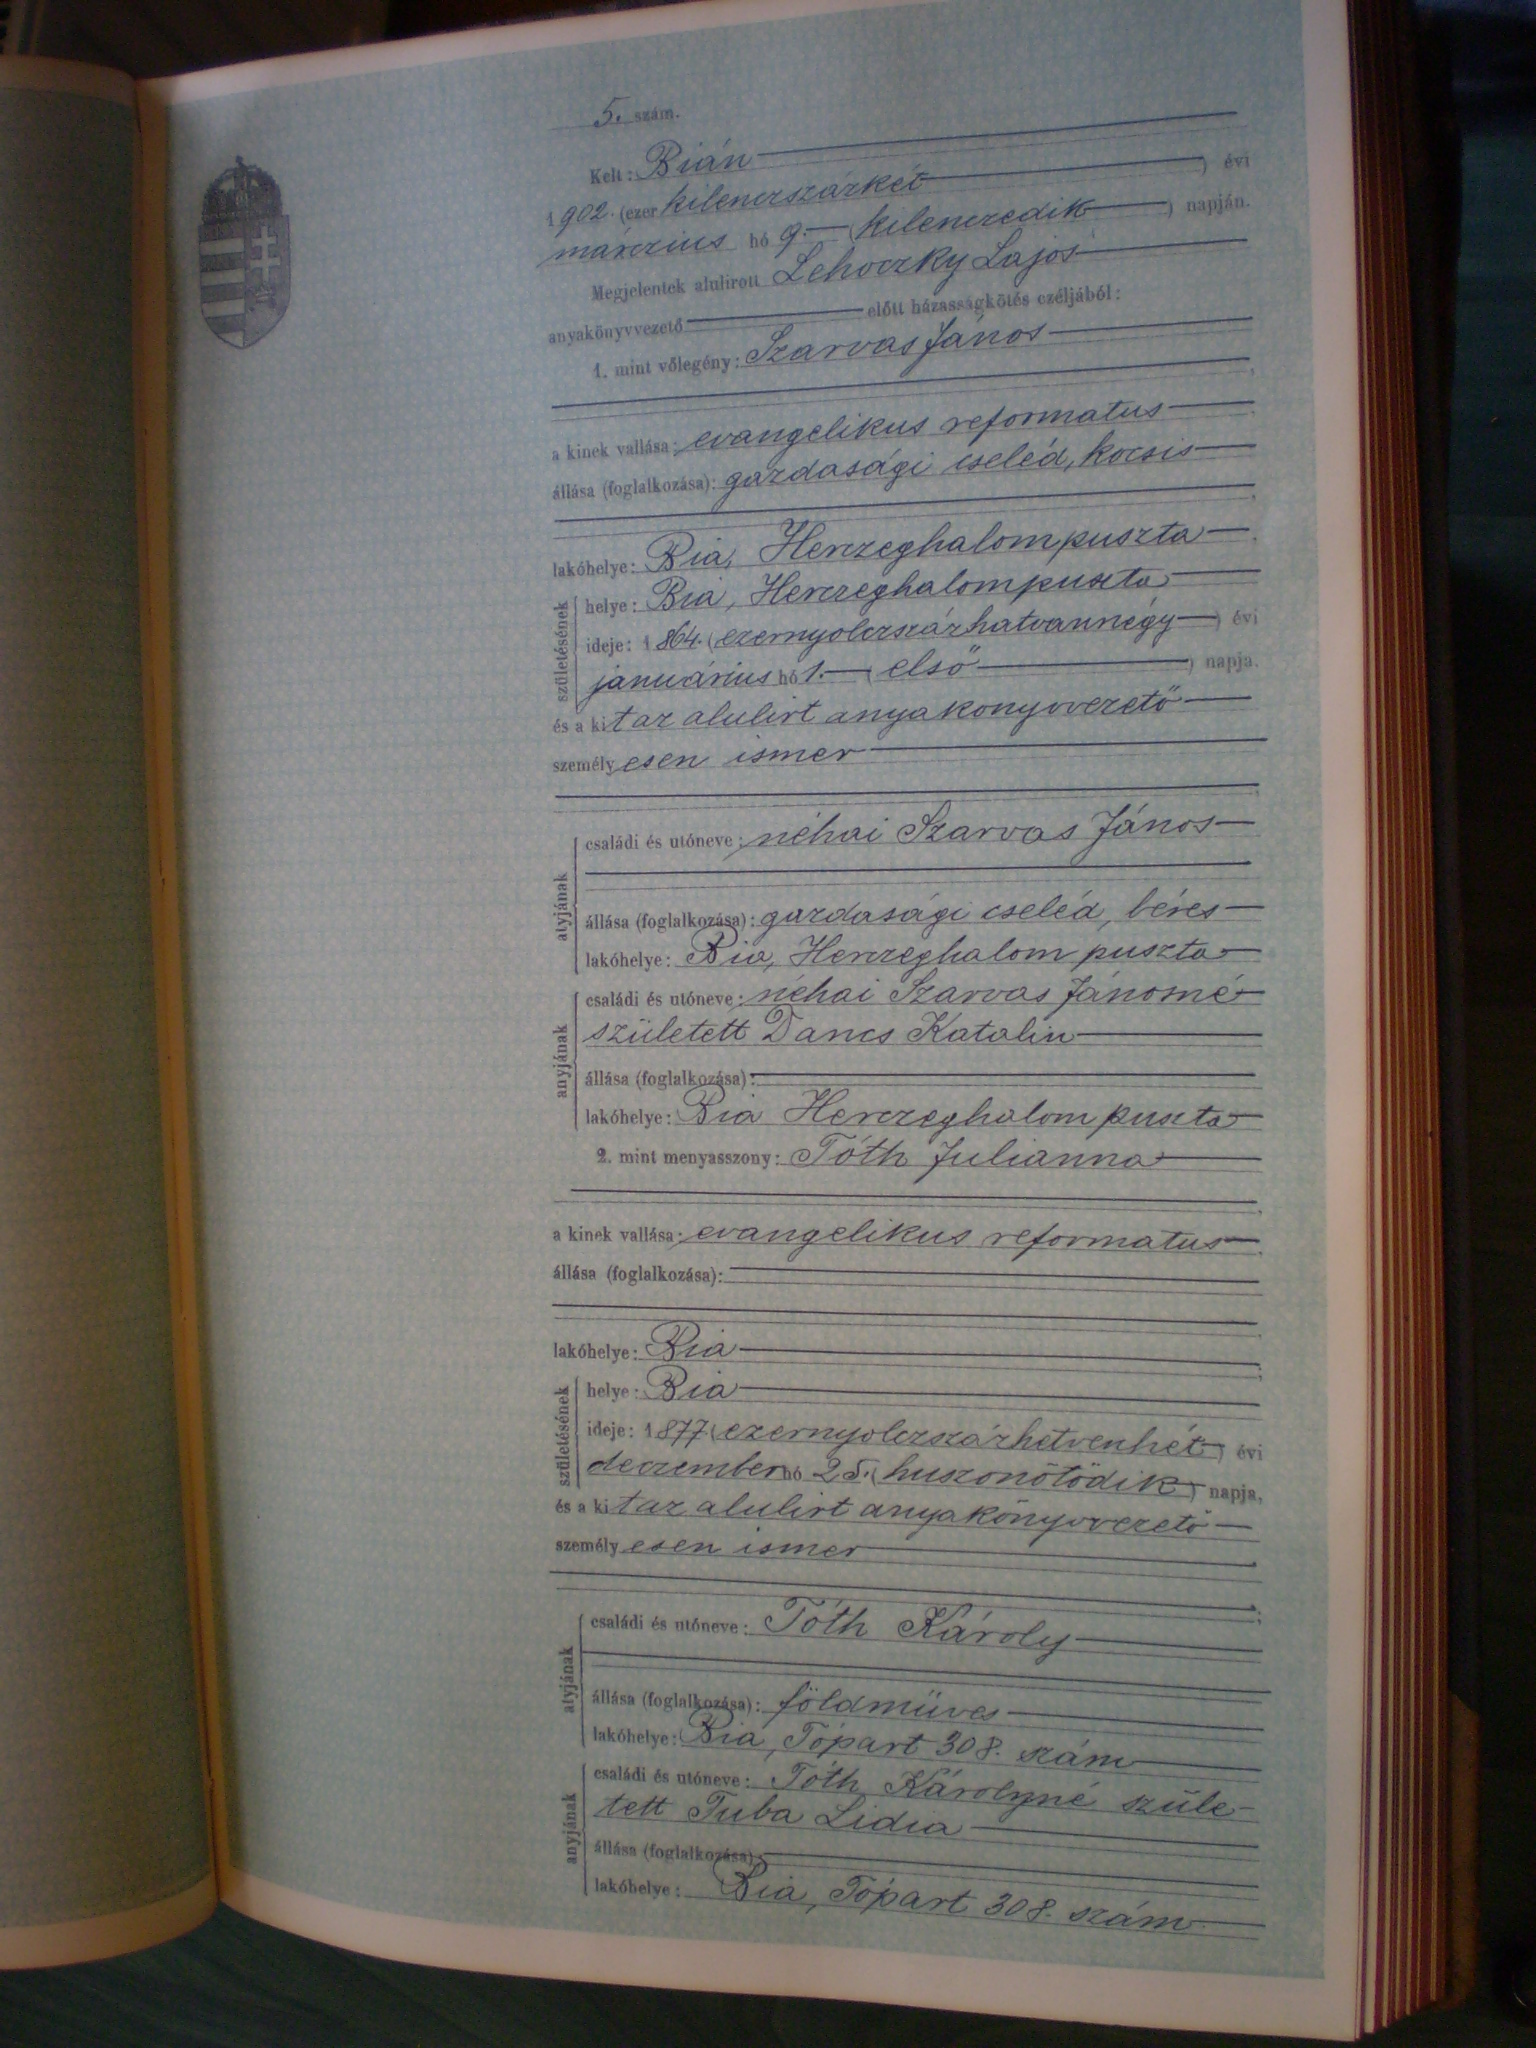 5. szám.
Kelt: Bián
1902. (ezer kilenczszázkét) évi
márczius hó 9. (kilenczedik) napján.
Megjelentek alulirott Lehoczky Lajos
anyakönyvvezető előtt házasságkötés czéljából:
1. mint vőlegény: Szarvas János
a kinek vallása: evangelikus reformatus
állása (foglalkozása): gazdasági cseléd, kocsis
lakóhelye: Bia, Herczeghalompuszta
születésének
helye: Bia, Herczeghalompuszta
ideje: 1864. (ezernyolczszázhatvannégy) évi
január​ius hó 1. (első) napja.
és a kit az alulirt anyakönyvvezető
személyesen ismer
atyjának
családi és utóneve: néhai Szarvas János
állása (foglalkozása): gazdasági cseléd, béres
lakóhelye: Bia, Herczeghalom puszta
anyjának
családi és utóneve: néhai Szarvas Jánosné
született Dancs Katalin
állása (foglalkozása):
lakóhelye: Bia Herczeghalom puszta
2. mint menyasszony: Tóth Julianna
a kinek vallása: evangelikus reformatus
állása (foglalkozása):
lakóhelye: Bia
születésének
helye: Bia
ideje: 1877 (ezernyolczszázhetvenhét) évi
deczember hó 25. (huszonötödik) napja,
és a kit az alulirt anyakönyvvezető
személyesen ismer
atyjának
családi és utóneve: Tóth Károly
állása (foglalkozása): földmüves
lakóhelye: Bia, Tópart 308. szám
anyjának
családi és utóneve: Tóth Károlyné szüle-
tett Tuba Lidia
állása (foglalkozása):
lakóhelye: Bia, Tópart 308. szám